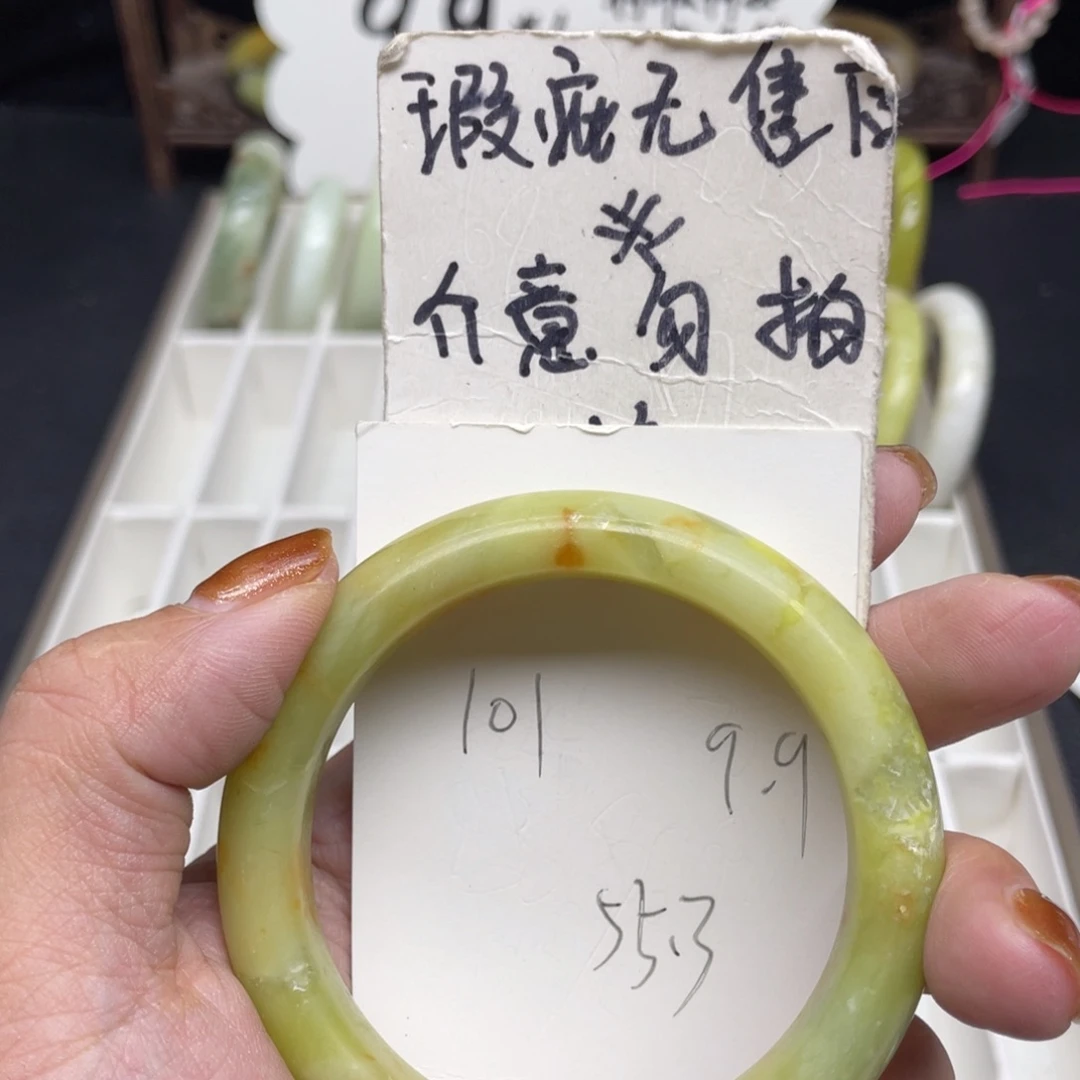 瑕疵无售后
介意勿拍
101
9.9
55.3